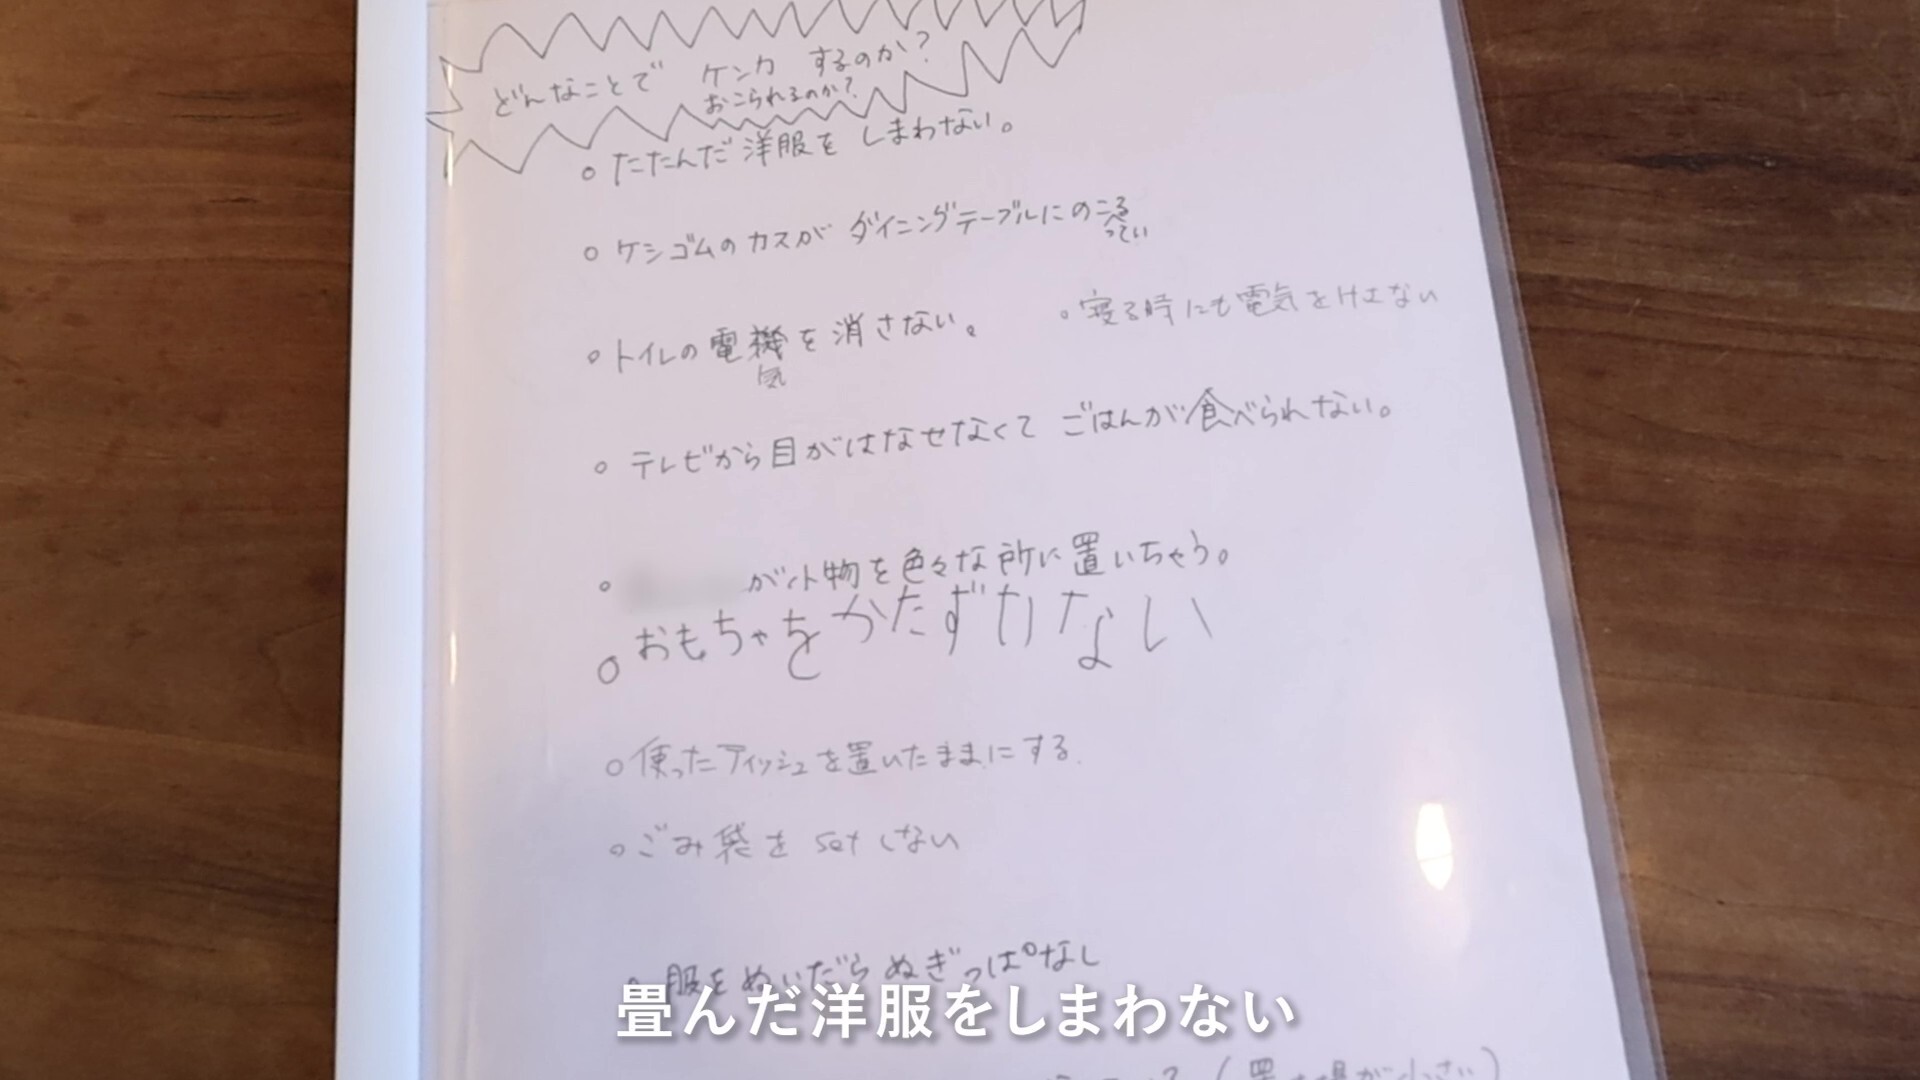 どんなことで ケンカ するのか?
おこられるのか?
○ たたんだ洋服を しまわない。
○ ケシゴムのカスが ダイニングテーブルにのこる
ってい
○ トイレの電機を消さない。
気
○ 寝る時にも電気をけさない
○ テレビから目がはなせなくて ごはんが食べられない。
○ が小物を色々な所に置いちゃう。
○ おもちゃをかたずけない
○ 使ったティッシュを置いたままにする
○ ごみ袋を setしない
○ 服をぬいだらぬぎっぱなし
畳んだ洋服をしまわない